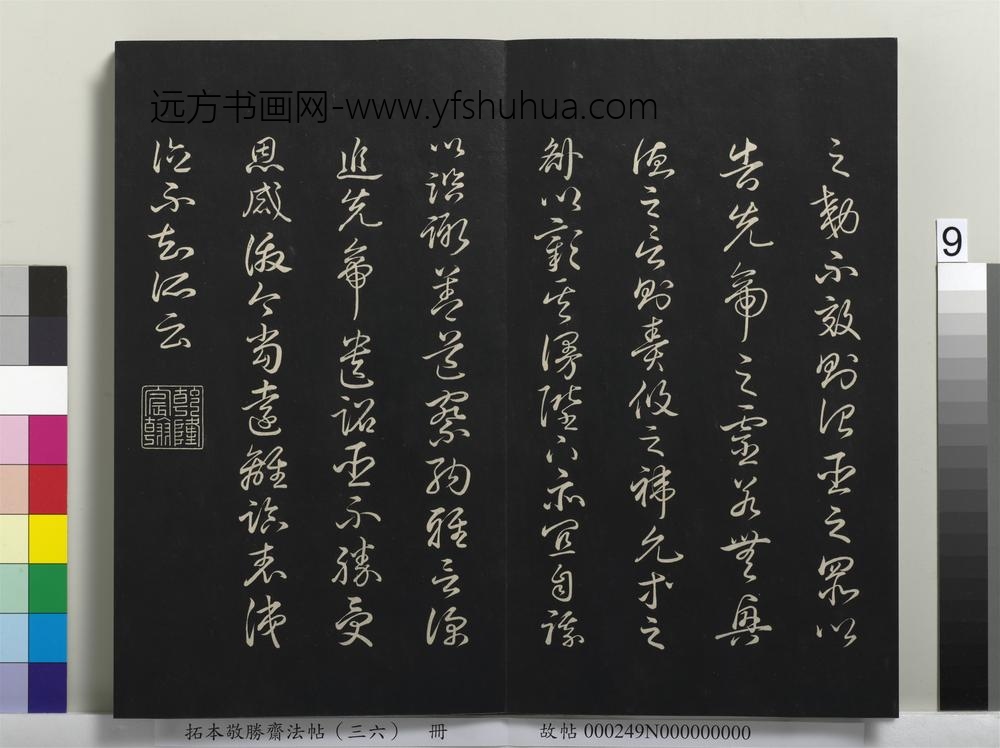 远方书画网-www.yfshuhua.com
之效不效則治臣之罪以
告先帝之靈若無興
德之言則責攸之禕允等之
咎以彰其慢陛下亦宜自謀
以諮諏善道察納雅言深
追先帝遺詔臣不勝受
恩感激今當遠離臨表涕
泣不知所云
乾隆宸翰
9
拓本敬勝齋法帖（三六） 冊 故帖 000249N000000000